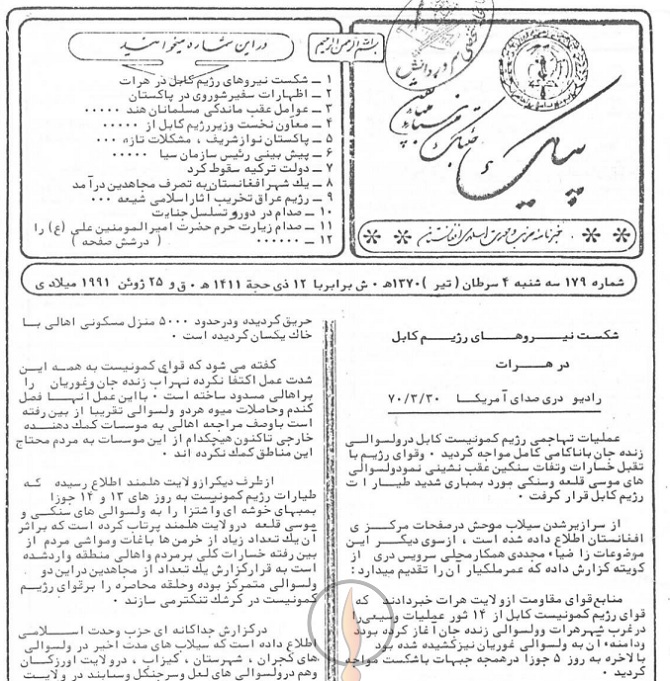 پیک
خبرنامه حزب وحدت اسلامی افغانستان
بسم الله الرحمن الرحیم
در این شماره میخوانید
۱ ــ شکست نیروهای رژیم کابل در هرات
۲ ــ اظهارات سفیر شوروی در پاکستان
۳ ــ عوامل عقب ماندگی مسلمانان هند ۰۰۰۰۰
۴ ــ معاون نخست وزیر رژیم کابل از ۰۰۰۰۰
۵ ــ پاکستان نواز شریف ، مشکلات تازه ۰۰۰
۶ ــ پیش بینی رئیس سازمان سیا ۰۰۰۰۰
۷ ــ دولت ترکیه سقوط کرد
۸ ــ یك شهر افغانستان به تصرف مجاهدین درآمد
۹ ــ رژیم عراق تخریب آثار اسلامی شیعه ۰۰۰
۱۰ ــ صدام در دور و تسلسل جنایت
۱۱ ــ صدام زیارت حرم حضرت امیرالمومنین علی (ع) را
۱۲ ــ ۰۰۰۰۰۰ ( درشش صفحه )
شماره ۱۷۹ سه شنبه ۴ سرطان ( تیر ) ۱۳۷۰ه ۰ ش برابر با ۱۲ ذی حجة ۱۴۱۱ ه ۰ ق و ۲۵ ژوئن ۱۹۹۱ میلادی
شکست نیــروهــای رژیــم کابل
در هــرات
رادیو دری صدای آمریکا ۷۰/۳/۳۰
عملیات تهاجمی رژیم کمونیست کابل درولسوالــی
زنده جان باناکامی کامل مواجه گردید ۰ وقوای رژیم با
تقبل خسارات وتلفات سنگین عقب نشینی نمودولسوالی
های موسی قلعه وسنگی مورد بمباری شدید طیــار ا ت
رژیم کابل قرار گرفت ۰
از سرازیرشدن سیلاب موحش درصفحات مرکــز ی
افغانستان اطلاع داده شده است ، ازسوی دیگــر ایــن
موضوعات را ضیاء مجددی همکار محلی سرویس دری از
کویته گزارش داده که عمر ملکیار آن را تقدیم میدارد :
منابع قوای مقاومت ازولایت هرات خبردادند که
قوای رژیم کمونیست کابل از ۱۴ ثور عملیات وسیعی را
درغرب شهرهرات وولسوالی زنده جان آغاز کرده بودد
ودامنه آن به ولسوالی غوریان نیز کشیده شده بود
بالاخره به روز ۵ جوزا درهمه جبهات باشکست مواجه
گردید ۰
حریق گردیده ودرحدود ۵۰۰۰ منزل مسکونی اهالی بــا
خاك یکسان گردیده است ۰
گفته می شود که قوای کمونیست به همــه ایــن
شدت عمل اکتفا نکرده نهرآب زنده جان وغوریان را
براهالی مسدود ساخته است ۰ بااین عمل آنهــا فصل
گندم وحاصلات میوه هردو ولسوالی تقریبا از بین رفته
است باوصف مراجعه اهالی به موسسات کمك دهنــده
خارجی تاکنون هیچکدام از این موسسات به مردم محتاج
این مناطق کمك نکرده اند ۰
ازطرف دیگرازولایت هلمند اطلاع رسیده کــه
طیارات رژیم کمونیست به روز های ۱۳ و ۱۴ جوزا
بمبهای خوشه ای وآشتزا را به ولسوالی های سنگــی و
موسی قلعه درولایت هلمند پرتاب کرده است که براثر
آن یك تعداد زیاد از خرمن ها باغات ومواشی مردم از
بین رفته خسارات کلی برمردم واهالی منطقه واردشده
است به قرارگزارش یك تعداد از مجاهدین دراین دو
ولسوالی متمرکز بوده وحلقه محاصره را برقوای رژیــم
کمونیست در گرشك تنگترمی سازند ۰
درگزارش جداگانه ای حزب وحدت اســلامــی
اطلاع داده است که سیلاب های مدت اخیر در ولسوالی
های گجران ، شهرستان ، کیزاب ، درولایت اورزگــان
وهم درولسوالی های لعل وسرجنگل وسنابند در ولایــت